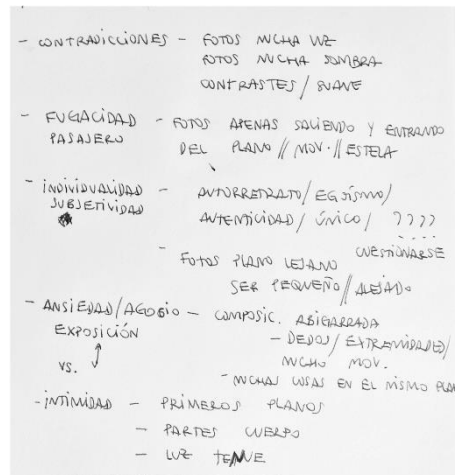 - CONTRADICCIONES - FOTOS MUCHA LUZ
FOTOS MUCHA SOMBRA
CONTRASTES / SUAVE
- FUGACIDAD - FOTOS APENAS SALIENDO Y ENTRANDO
PASAJERO DEL PLANO // MOV. // ESTELA
- INDIVIDUALIDAD - AUTORRETRATO / EGOÍSMO /
SUBJETIVIDAD AUTENTICIDAD / ÚNICO / ????
CUESTIONARSE
- FOTOS PLANO LEJANO
SER PEQUEÑO // ALEJADO
- ANSIEDAD / AGOBIO - COMPOSIC. ABIGARRADA
EXPOSICIÓN - DEDOS / EXTREMIDADES /
MUCHO MOV.
VS. - MUCHAS COSAS EN EL MISMO PLAN
- INTIMIDAD - PRIMEROS PLANOS
- PARTES CUERPO
- LUZ TENUE